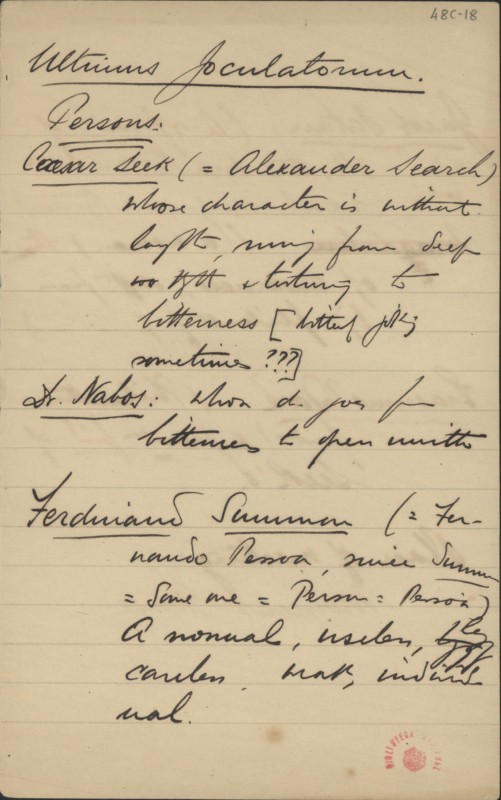 48C-18
Ultimus Joculatorum.
Persons:
Caesar Seek (= Alexander Search)
whose character is without
laughter, moving from deep
& torturing to
bitterness [bitterly joking
sometimes ???]
Dr. Nabos: whose d. goes from
bitterness to open mirth
Ferdinand Summan (= Fer-
nando Pessoa, since Summan
= Some one = Person = Pessoa)
A normal, useless, lazy
careless, weak, individ
ual.